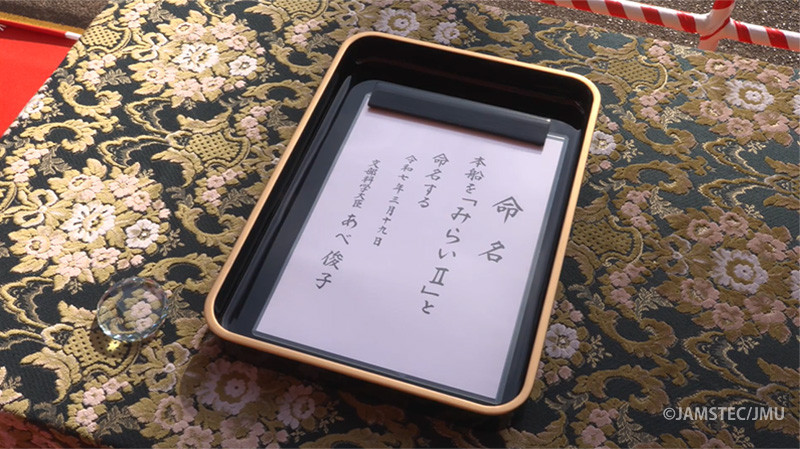 命名
本船を「みらいⅡ」と
命名する
令和七年三月十九日
文部科学大臣 あべ 俊子
©JAMSTEC/JMU